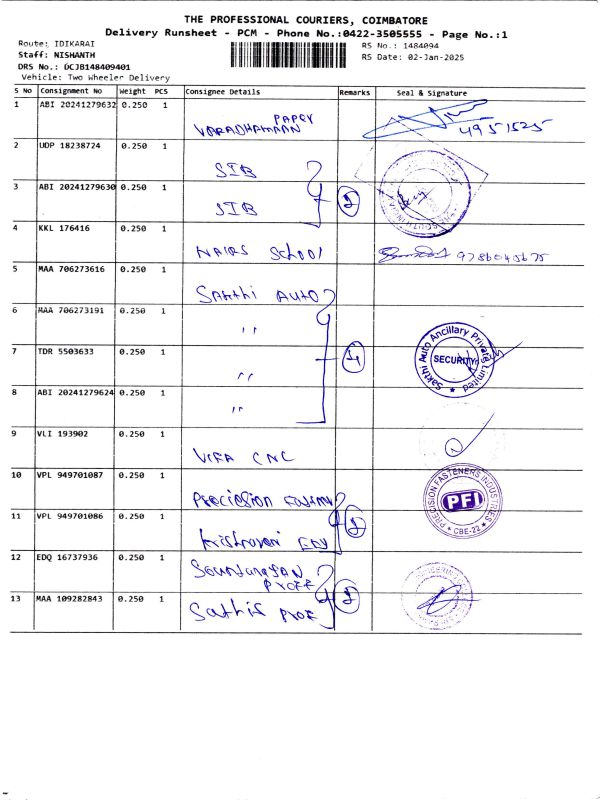 THE PROFESSIONAL COURIERS, COIMBATORE
Delivery Runsheet - PCM - Phone No.:0422-3505555 - Page No.:1
Route: IDIKARAI
RS No.: 1484094
Staff: NISHANTH
RS Date: 02-Jan-2025
DRS No.: DCJB148409401
Vehicle: Two Wheeler Delivery
S No Consignment No Weight PCS Consignee Details Remarks Seal & Signature
1 ABI 20241279632 0.250 1
PAPEY
VARADHAMAAN
4951525
2 UDP 18238724 0.250 1
SIB
3 ABI 20241279630 0.250 1
SIB 2
4 KKL 176416 0.250 1
NAIRS School
5 MAA 706273616 0.250 1
Sakthi AUTO
6 MAA 706273191 0.250 1
"
7 TDR 5503633 0.250 1
"
Sakthi Auto Ancillary Private Limited
SECURITY
8 ABI 20241279624 0.250 1
"
9 VLI 193902 0.250 1
CNC
10 VPL 949701087 0.250 1
Precision
PRECISION FASTENERS INDUSTRIES
PFI
CBE-22
11 VPL 949701086 0.250 1
2
12 EDQ 16737936 0.250 1
PROFF
13 MAA 109282843 0.250 1
Sathis PROF
2